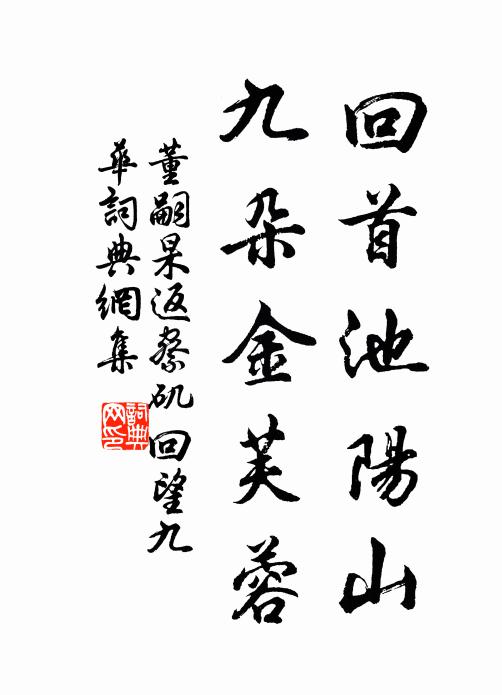 回首池陽山
九朵金芙蓉
董嗣杲返蔡矶回望九
華詞典網集
詞典网印